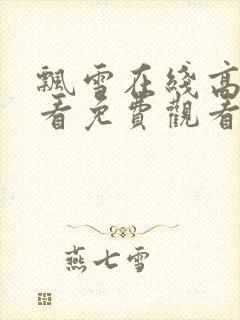 飄雪在綫高
看免費觀看
燕七雪